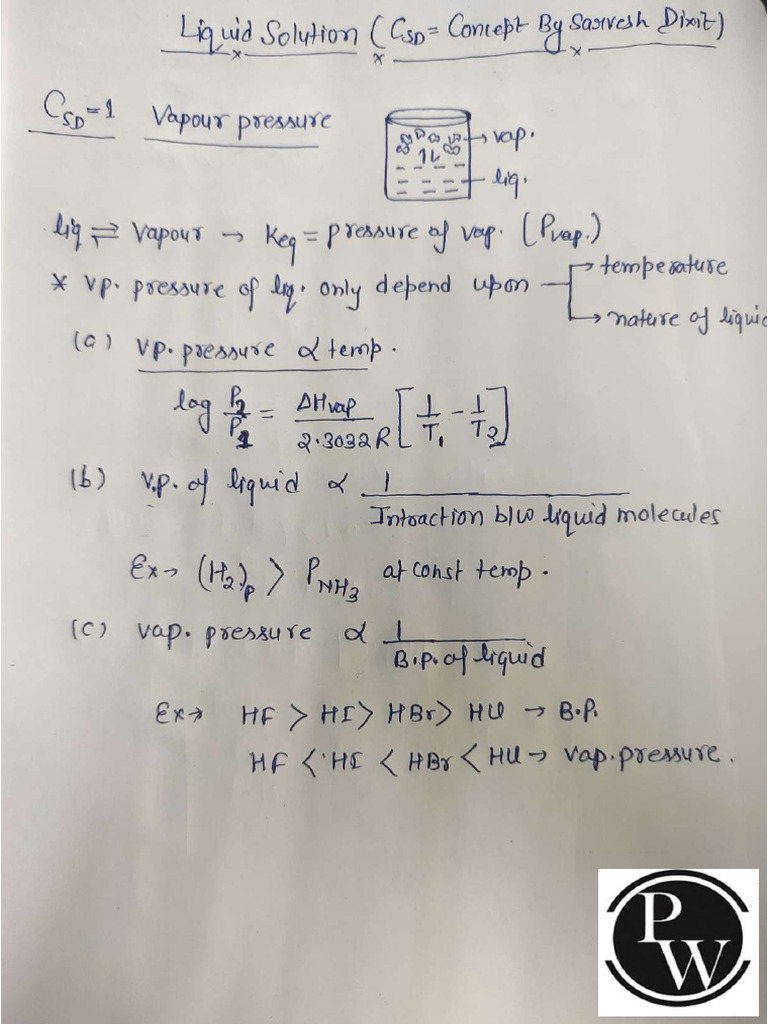 Liquid Solution (C_SD = Concept By Sarvesh Dixit)
C_SD = 1 Vapour pressure
→ vap.
→ liq.
liq ⇌ Vapour → Keq = pressure of vap. (Pvap.)
* vp. pressure of liq. only depend upon → temperature
→ nature of liquid
(a) vp. pressure ∝ temp.
log P₂/P₁ = ΔHvap / 2.3032R [1/T₁ - 1/T₂]
(b) v.p. of liquid ∝ 1 / Intraction b/w liquid molecules
Ex → (H₂)p > P NH₃ at const temp.
(c) vap. pressure ∝ 1 / B.p. of liquid
Ex → HF > HI > HBr > HCl → B.P.
HF < HI < HBr < HCl → vap. pressure.
PW